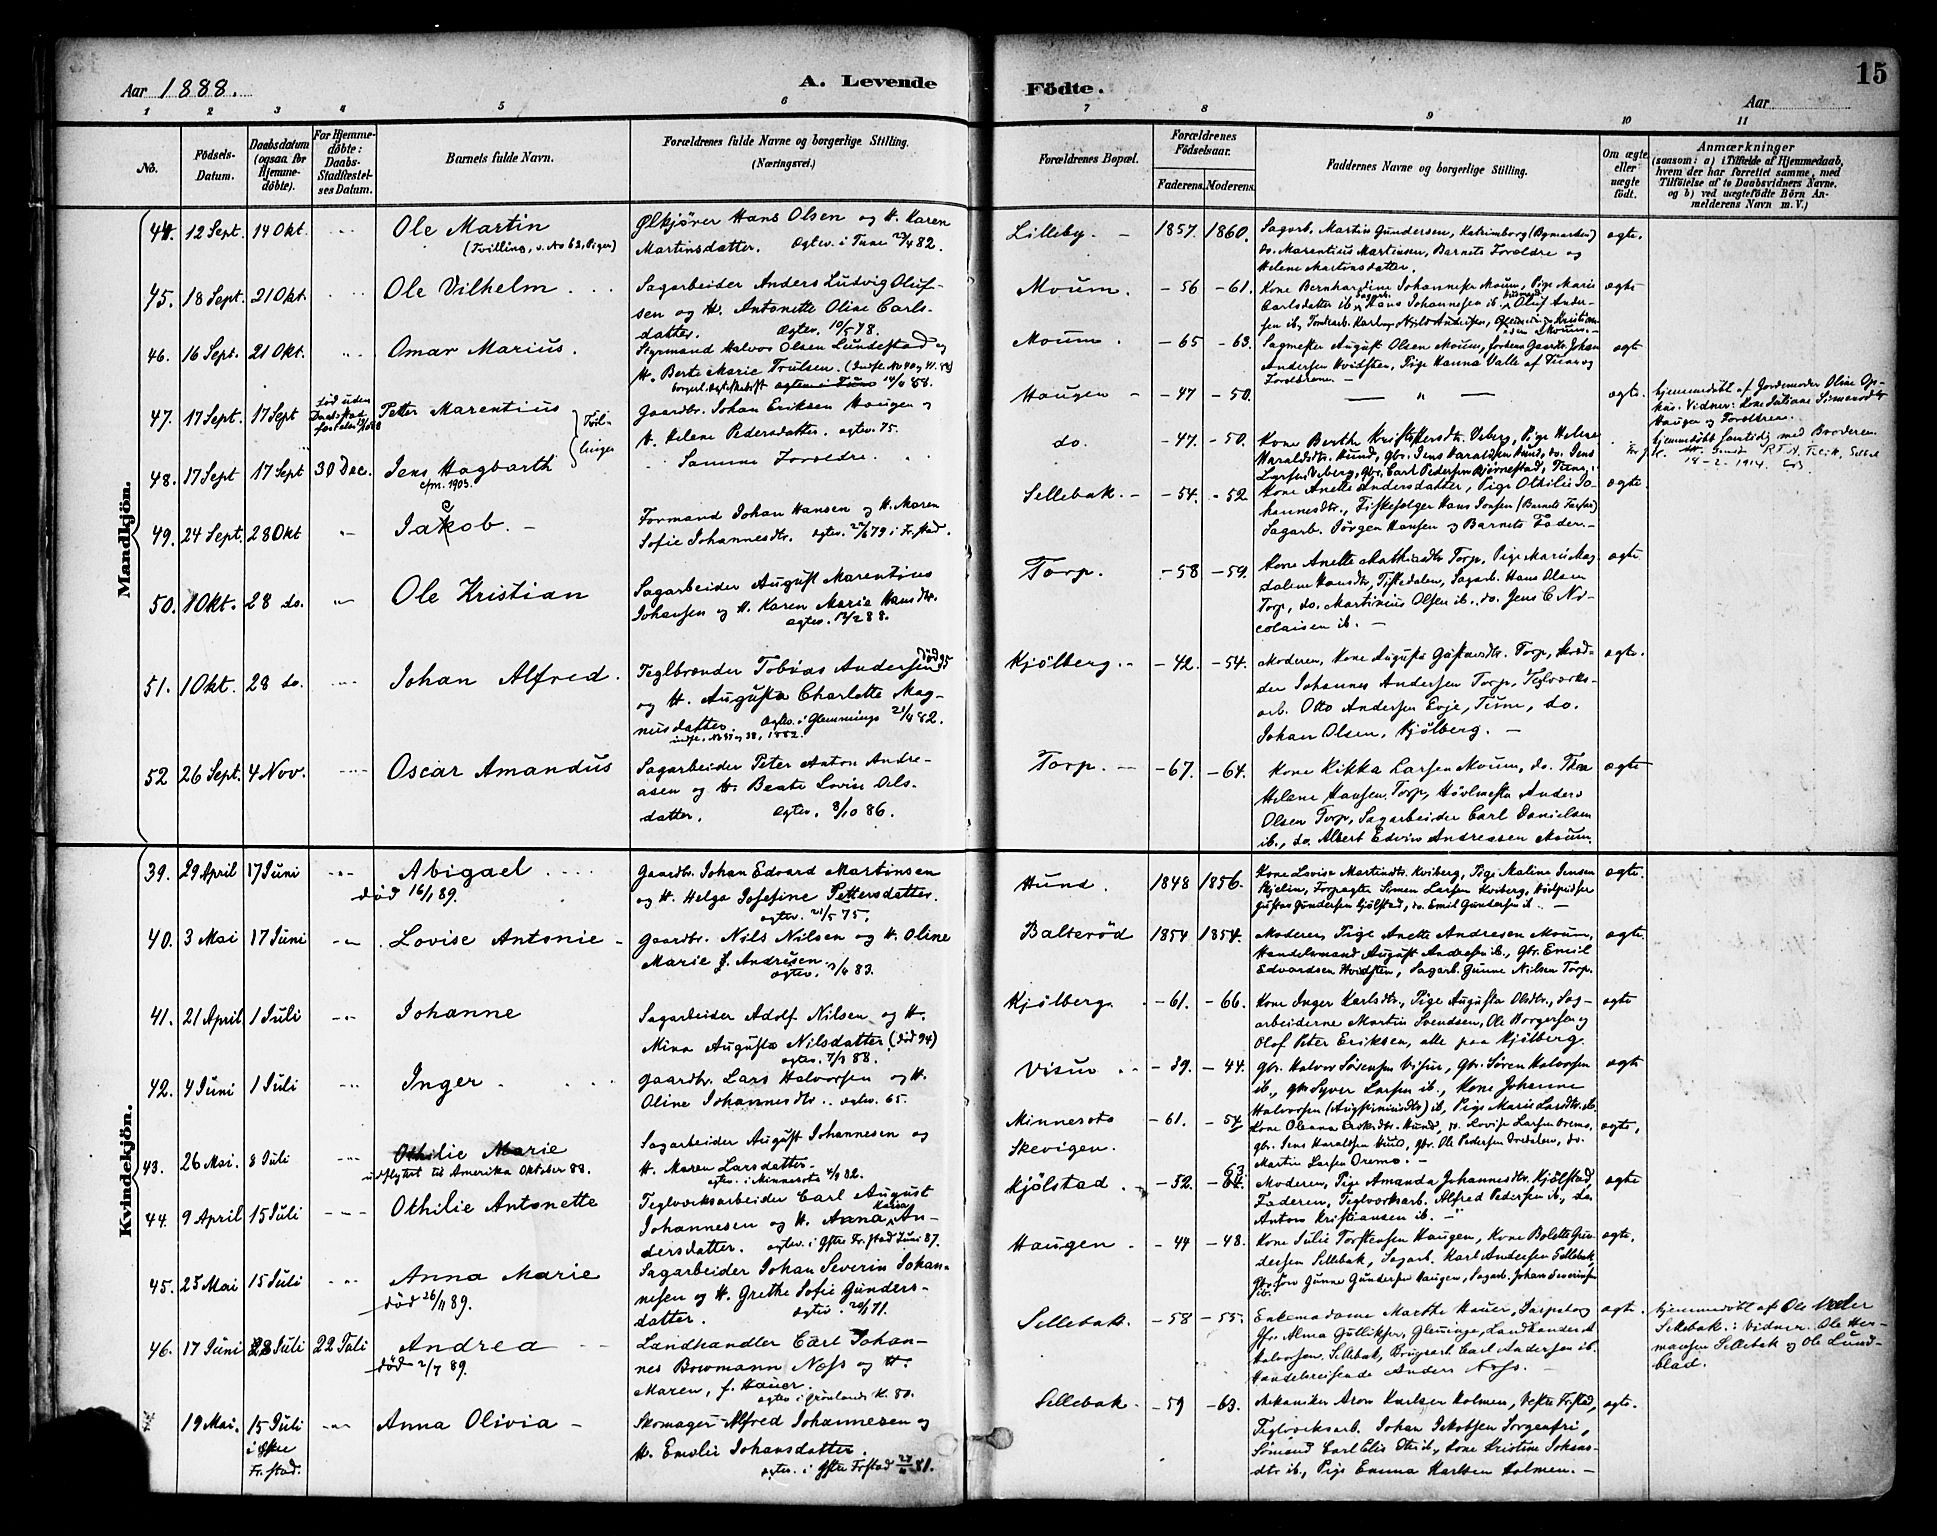 Aar 1888.
A. Levende
Födte.
Aar
15
1 2 3 4 5 6 7 8 9 10 11
No.
Födsels-Datum.
Daabsdatum (ogsaa for Hjemme-döbte).
For Hjemme-döbte: Daabs-Stadfæstel-ses Datum.
Barnets fulde Navn.
Forældrenes fulde Navne og borgerlige Stilling.
(Næringsvei.)
Forældrenes Bopæl.
Forældrenes Födselsaar.
Faderens. Moderens.
Faddernes Navne og borgerlige Stilling.
Om ægte eller uægte födt.
Anmærkninger
(saasom: a) i Tilfælde af Hjemmedaab,
hvem der har forrettet samme, med
Tilföielse af to Daabsvidners Navne,
og b) ved uægtefödte Börn An-
melderens Navn m. V.)
Mandkjön.
44. 12 Sept. 14 Okt. Ole Martin
(Tvilling, v. No 62, Piger)
Ølkjører Hans Olsen og H. Karen
Martinsdatter. Ægtev. i Tune 82.
Lilleby. 1857. 1860.
Sagarb. Martin Gundersen, Katrineborg (Bymarken)
do. Marentius Martinsen, Barnets Forældre og
Helene Martinsdatter.
ægte.
45. 18 Sept. 21 Okt. Ole Vilhelm
Sagarbeider Anders Ludvig Oluf-
sen og H. Antonette Oline Carls-
datter. Ægtev. 10/5 78.
Moum. - 56 - 61.
Kone Bernhardine Johannesen Moum, Pige Marie
Carlsdatter ib., Hans Johannesen ib., Oluf Ander-
ægte
46. 16 Sept. 21 Okt. Omar Marius.
Styrmand Halvor Olsen Lundestad og
H. Berte Marie Trulsen.
Moum. - 65 - 63.
Sagmester August Olsen Moum, Gaardbr. Johan
Andersen Hvidsten, Pige Hanna Valle af Tune og
Forældrene. -
ægte
47. 17 Sept. 17 Sept Død uden Daabs Stad-fæstelse Petter Marentius
Tvil-
linger
Gaardbr. Johan Eriksen Haugen og
H. Helene Pedersdatter. ægtev. 75.
Haugen - 47 - 50.
ægte.
hjemmedøbt af Jordemoder Oline Op-
hus. Vidner: Kone Juliane Simensdtr
Haugen og Forældren.
48. 17 Sept 17 Sept 30 Dec. Jens Hagbarth
cfm. 1903.
Samme Forældre.
do. - 47. - 50.
Kone Berthe Kristoffersdtr. Viberg, Pige Helene
Haraldsdtr. Hund, gbr. Jens Haraldsen Hund, do. Jens
Larsen Viberg, gbr. Carl Pedersen Bjørnestad, Tune.
hjemmedøbt samtidig med Broderen.
14-2. 1914.
49. 24 Sept. 28 Okt Jakob. -
Formand Johan Hansen og H. Maren
Sofie Johannesdtr. ægtev. 79 i Fr.stad.
Sellebak. - 54. - 52
Kone Anette Andersdatter, Pige Othilie Jo-
hannesdtr., Fiskefølger Hans Jonsen (Barnets Farfar)
Sagarb. Jørgen Hansen og Barnets Fader.
ægte.
50. 1 Okt. 28 do. Ole Kristian
Sagarbeider August Marentius
Johansen og H. Karen Marie Hansdtr.
Ægtev. 12/2 88.
Torp. - 58 - 59.
Kone Anette Mathiasdtr Torp, Pige Marie Mag-
dalene Hansdtr, Tistedalen, Sagarb. Hans Olsen
Torp, do. Martinius Olsen ib., do. Jens C. Ni-
colaisen ib. -
ægte
51. 1 Okt. 28 do. Johan Alfred.
Teglbrænder Tobias Andersen død 95
og H. Augusta Charlotte Mag-
nusdatter. Ægtev. i Glemminge 21/4 82.
Kjölberg. - 42. - 54.
Moderen, Kone Augusta Gustavsdtr. Torp, Skræd-
der Johannes Andersen Torp, Teglværks-
arb. Otto Andersen Evje, Tune, do.
Johan Olsen, Kjølberg. -
ægte.
52 26 Sept. 4 Nov. Oscar Amandus
Sagarbeider Peter Anton Andre-
asen og H. Beate Lovise Ols-
datter. Ægtev. 8/10 86.
Torp. - 67. - 64.
Kone Kikka Larsen Moum, do.
Helene Hansen Torp, Høvlmester Anders
Olsen Torp, Sagarbeider Carl Danielsen
ib., do. Albert Edvin Andreassen Moum.
ægte
Kvindekjön.
39. 29 April 17 Juni Abigael
död 16/1 89.
Gaardbr. Johan Edvard Martinsen
og H. Helga Josefine Pettersdatter.
ægtev. 21/5 75.
Hund. 1848 1856.
Kone Lovise Martinsdtr. Kviberg, Pige Maline Jensen
Kjelin, Forpagter Simen Larsen Kviberg,
Gustav Gundersen Kjölstad, do. Emil Gundersen ib. -
ægte.
40. 3 Mai 17 Juni Lovise Antonie
Gaardbr. Nils Nilsen og H. Oline
Marie f. Andresen.
ægtev. 83.
Balteröd 1854 1854.
Moderen, Pige Anette Andresen Moum,
Handelsmand August Andresen ib., Gbr. Emil
Edvardsen Hvidsten, Sagarb. Gunne Nilsen Torp.
ægte.
41. 21 April 1 Juli Johanne
Sagarbeider Adolf Nilsen og H.
Mina Augusta Nilsdatter (död 94)
ægtev. 88.
Kjölberg. - 61. - 66.
Kone Inger Karlsdtr., Pige Augusta Olsdtr., Sag-
arbeiderne Martin Svendsen, Ole Borgersen og
Olof Peter Eriksen, alle paa Kjölberg.
ægte
42. 4 Juni 1 Juli Inger.
Gaardbr. Lars Halvorsen og H.
Oline Johannesdtr. ægtev. 65.
Visur - 39. - 44.
Gbr. Halvor Sörensen Visur, Gbr. Sören Halvorsen
ib., gbr Syver Larsen ib., Kone Johanne
Halvorsen ib., Pige Marie Larsdtr. ib.
ægte
43. 26 Mai. 8 Juli Othilie Marie
udflyttet til Amerika Oktober 88.
Sagarbeider August Johannesen og
H. Maren Larsdatter.
ægtev. i Minnesota 4/9 82.
Minnesota
Skevigen. - 61. - 57
Kone Oleana Eriksdtr. Hund, do. Lovise Larsen Oremo,
gbr. Jens Haraldsen Hund, gbr. Ole Pedersen Ordalen, do.
Martin Larsen Oremo. -
ægte,
44. 9 April 15 Juli Othilie Antonette
Teglværksarbeider Carl August
Johannesen og H. Anna Karine An-
dersdatter. ægtev. i Østre Fr.stad Juni 87.
Kjölstad. - 52. - 63
Moderen, Pige Amanda Johannesdtr. Kjölstad,
Faderen, Teglværksarb. Alfred Pedersen ib., do.
Anton Kristiansen ib. -
ægte
45. 23 Mai 15 Juli Anna Marie
död 26/11 89.
Sagarbeider Johan Severin Johan-
nesen og H. Grethe Sofie Gunders-
datter. ægtev. 71.
Haugen - 44 - 48.
Kone Julie Torstensen Haugen, Kone Bolette Gun-
dersen Sellebak, Sagarb. Karl Andersen Sellebak,
Gbr Gunne Gundersen Haugen, Sagarb. Johan Severinsen
ib.
ægte.
46. 17 Juni 23 Juli 22 Juli Andrea
död 2/7 89.
Landhandler Carl Johan-
nes Bowmann Næss og H.
Maren, f. Hauer.
ægtev i Grønlands K. 80.
Sellebak. - 58 - 55.
Enkemadame Marthe Hauer, Sarpsborg
Alma Gulliksen, Glemminge, Landhandler A
Halvorsen. Sellebak, Brugsarb. Carl Andersen ib.
Handelsreisende Anders Næss. -
ægte.
hjemmedøbt af Ole
Sellebak.: Vidner. Ole Her-
mansen Sellebak og Ole Lund-
blad.
19 Mai. 15 Juli i Østre Fr.stad. Anna Olivia -
Skomager Alfred Johannesen og
H. Emilie Johansdatter.
ægtev. i Østre Frstad 81.
Sellebak. - 59 - 63.
Mekaniker Aron Karlsen Holmen, Vestre Frstad,
Teglværksarb. Johan Jakobsen Sorgenfri,
Sømand Carl, Kone Kristine Johans-
dtr ib., Pige Emma Karlsen Holmen. -
ægte.